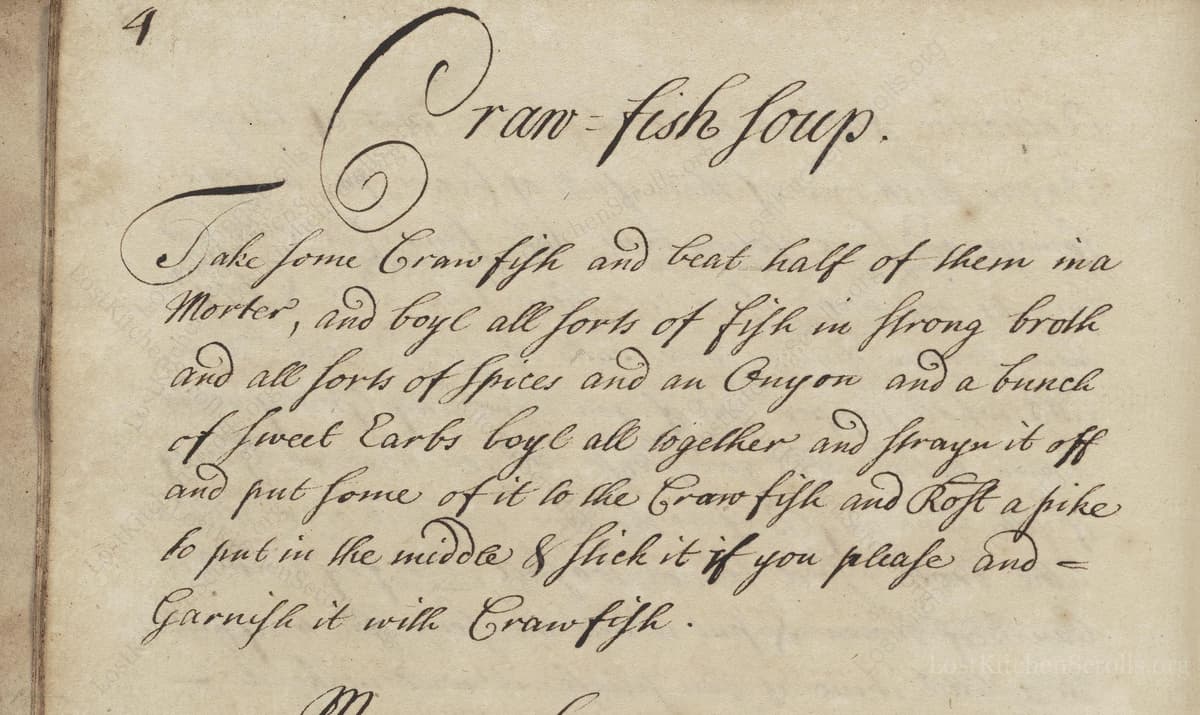 4
Craw=fish Soup.
Take some Craw fish and beat half of them in a
Morter, and boyl all sorts of fish in strong broth
and all sorts of spices and an Onyon and a bunch
of sweet Earbs boyl all together and strayn it off
and put some of it to the Craw fish and Rost a pike
to put in the middle & stick it if you please and =
Garnish it with Crawfish.
LostKitchenScrolls.org